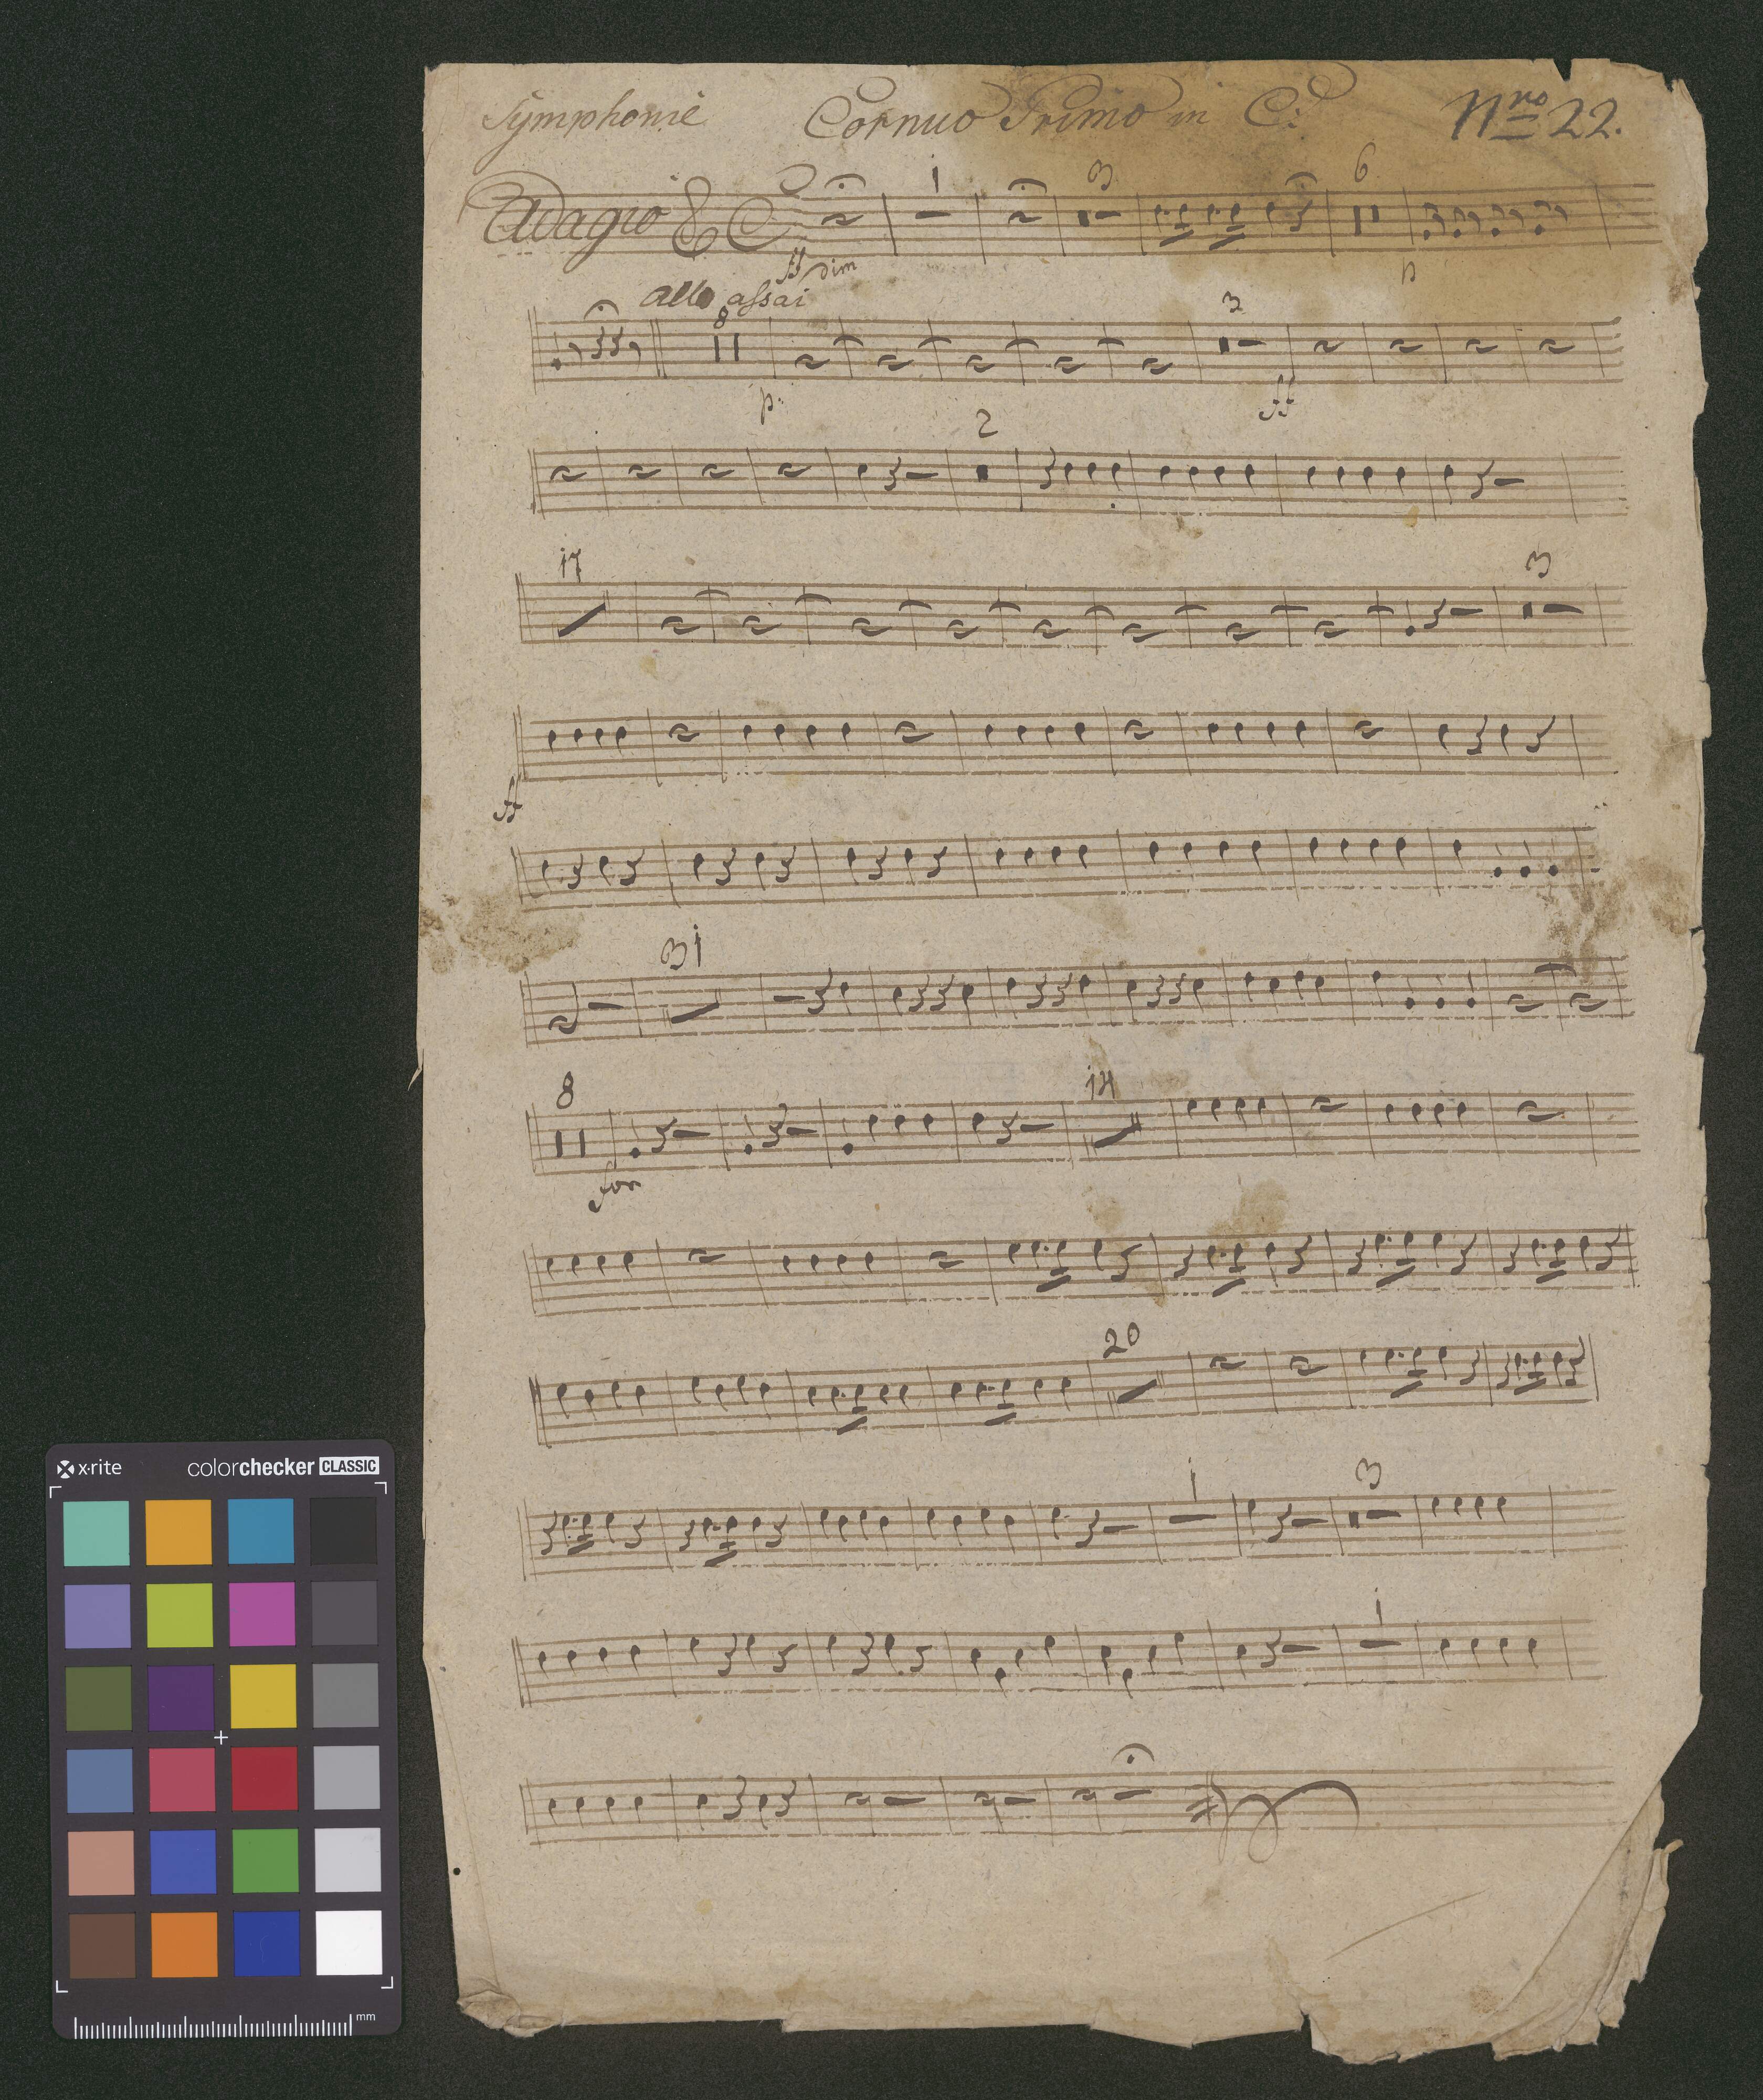 Symphonie Cornuo Primo in C: Nro 22.
1 3 6
Adagio
ff dim p
allo assai
8 3
p: ff
2
17 3
ff
31
8 14
for
20
1 3
1
x-rite colorchecker CLASSIC
mm